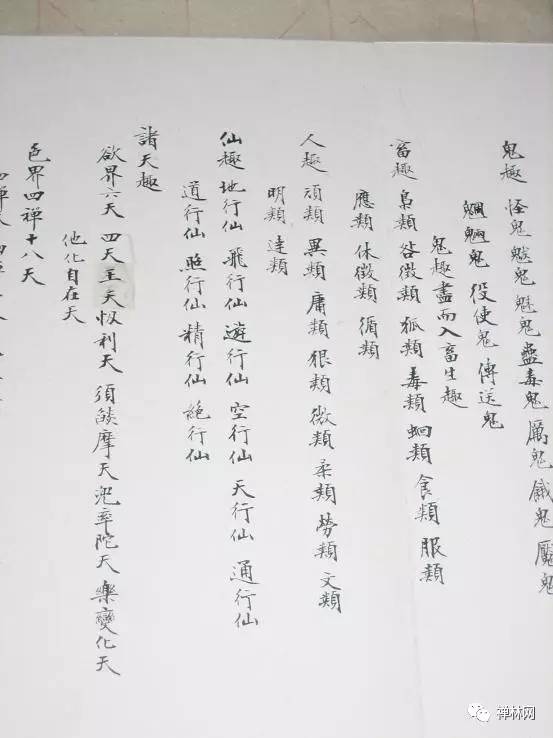 鬼趣 怪鬼 魃鬼 魅鬼 蠱毒鬼 厲鬼 餓鬼 魘鬼
魍魎鬼 役使鬼 傳送鬼
鬼趣盡而入畜生趣
畜趣 梟類 咎徵類 狐類 毒類 蛔類 食類 服類
應類 休徵類 循類
人趣 頑類 異類 庸類 狠類 微類 柔類 勞類 文類
明類 達類
仙趣 地行仙 飛行仙 遊行仙 空行仙 天行仙 通行仙
道行仙 照行仙 精行仙 絕行仙
諸天趣
欲界六天 四天王天 忉利天 須燄摩天 兜率陀天 樂變化天
他化自在天
色界四禅十八天
禅林网